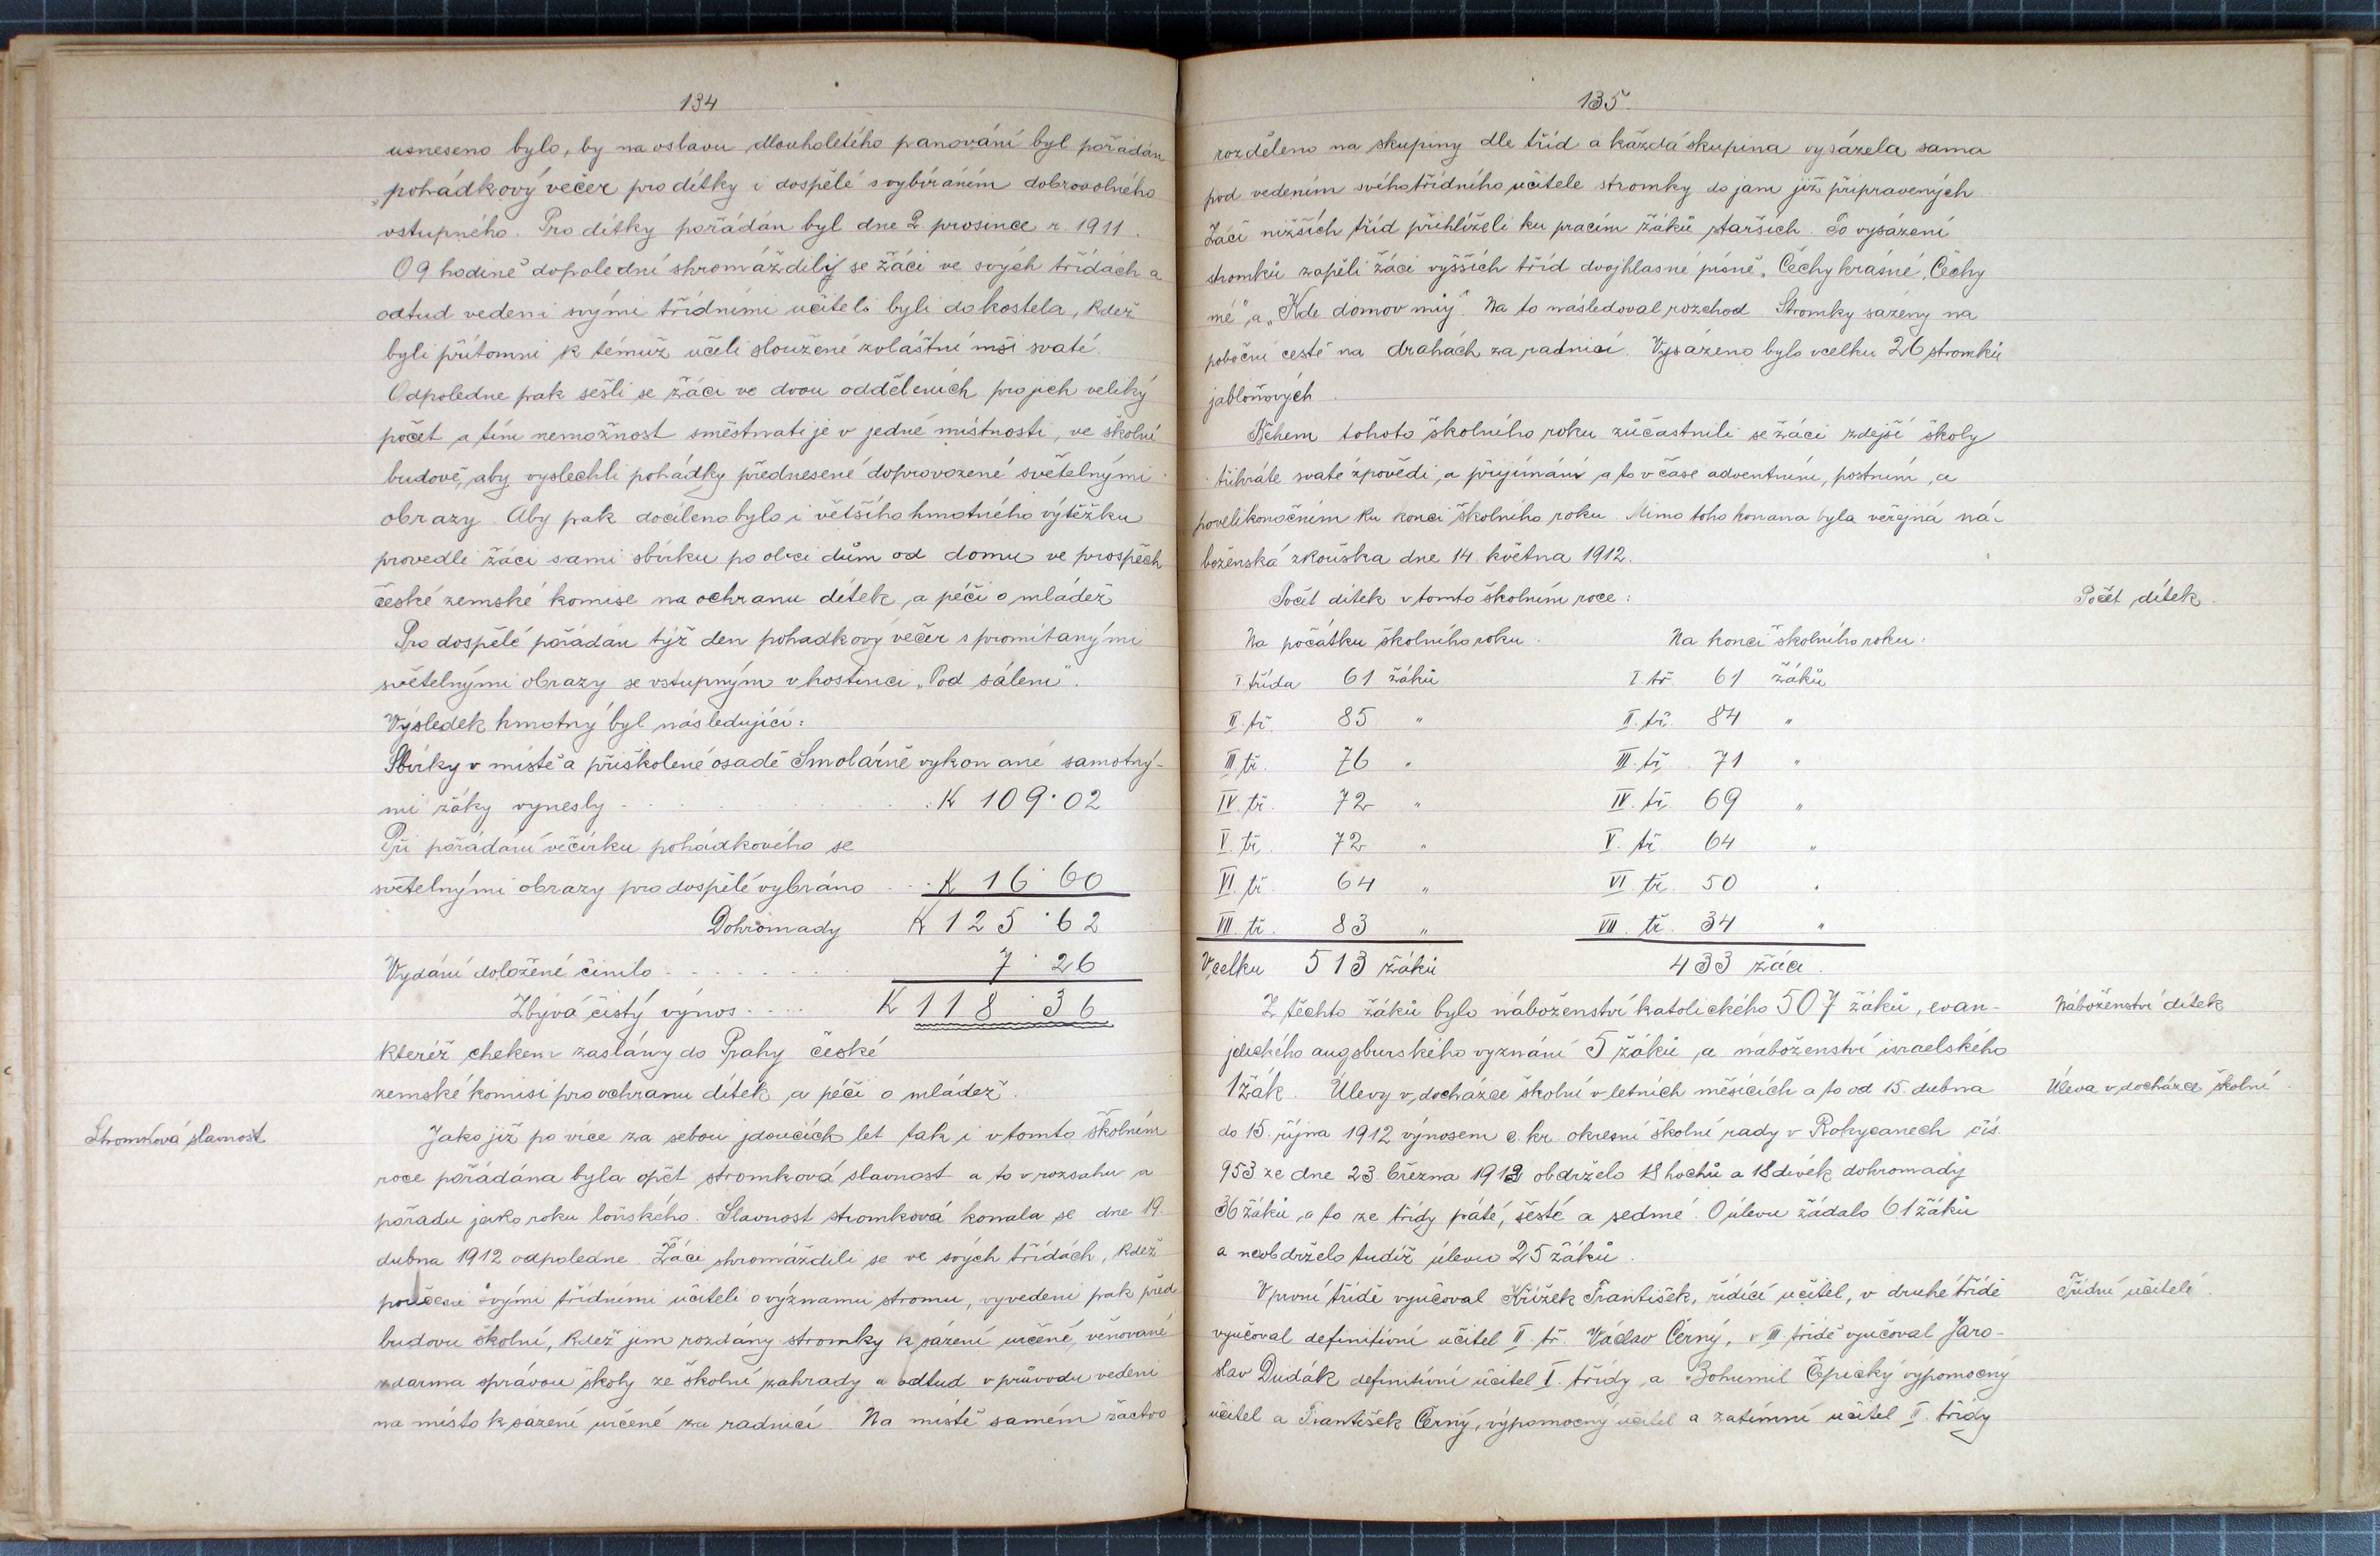 134
usneseno bylo, by na oslavu dlouholetého panování byl pořádán
„pohádkový večer pro dítky i dospělé s vybíráním dobrovolného
vstupného. Pro dítky pořádán byl dne 2. prosince r. 1911.
O 9 hodině dopolední shromáždily se žáci ve svých třídách a
odtud vedeni svými třídními učiteli byli do kostela, kdež
byli přítomni k témuž účeli sloužené zvláštní mši svaté.
Odpoledne pak sešli se žáci ve dvou odděleních pro jich veliký
počet a tím nemožnost směstnati je v jedné místnosti, ve školní
budově, aby vyslechli pohádky přednesené doprovozené světelnými
obrazy. Aby pak docíleno bylo i většího hmotného výtěžku
provedli žáci sami sbírku po obci dům od domu ve prospěch
české zemské komise na ochranu dítek a péči o mládež
Pro dospělé pořádán týž den pohadkový večer s promítanými
světelnými obrazy se vstupným v hostinci „Pod sálem".
Výsledek hmotný byl následující:
Sbírky v místě a přiškolené osadě Smolárně vykonané samotný-
mi žáky vynesly . . . . K 109·02
Při pořádání večírku pohádkového se
světelnými obrazy pro dospělé vybráno . . . K 16·60
Dohromady K 125·62
Vydání doložené činilo . . . . 7·26
Zbývá čistý výnos . . . . K 118·36
kteréž chekem zaslány do Prahy české
zemské komisi pro ochranu dítek a péči o mládež.
Stromková slavnost.
Jako již po více za sebou jdoucích let tak i v tomto školním
roce pořádána byla opět stromková slavnost a to v rozsahu a
pořadu jako roku loňského. Slavnost stromková konala se dne 19.
dubna 1912 odpoledne. Žáci shromáždili se ve svých třídách, kdež
poučeni svými třídními učiteli o významu stromu, vyvedeni pak před
budovu školní, kdež jim rozdány stromky k sázení určené, věnované
zdarma správou školy ze školní zahrady a odtud v průvodu vedeni
na místo k sázení určené za radnicí. Na místě samém žactvo
135.
rozděleno na skupiny dle tříd a každá skupina vysázela sama
pod vedením svého třídního učitele stromky do jam již připravených.
Žáci nižších tříd přihlíželi ku pracím žáků starších. Po vysázení
stromků zapěli žáci vyšších tříd dvojhlasné písně „Čechy krásné, Čechy
mé" a „Kde domov můj". Na to následoval rozchod. Stromky sázeny na
poboční cestě na drahách za radnicí. Vysázeno bylo vcelku 26 stromků
jabloňových.
Během tohoto školního roku zúčastnili se žáci zdejší školy
třikráte svaté zpovědi a přijímání a to v čase adventním, postním a
povelikonočním ku konci školního roku. Mimo toho konana byla veřejná ná-
boženská zkouška dne 14. května 1912.
Počet dítek v tomto školním roce: Počet dítek.
Na počátku školního roku. Na konci školního roku:
I. třída 61 žáků I. tř. 61 žáků
II. tř. 85 " II. tř. 84 "
III tř. 76 " III. tř. 71 "
IV. tř. 72 " IV. tř. 69 "
V. tř. 72 " V. tř. 64 "
VI. tř. 64 " VI. tř. 50 "
VII. tř. 83 " VII. tř. 34 "
Vcelku 513 žáků 433 žáci.
Z těchto žáků bylo náboženství katolického 507 žáků, evan- Náboženství dítek
jelického augsburského vyznání 5 žáků a náboženství israelského
1 žák. Úlevy v docházce školní v letních měsících a to od 15. dubna Úleva v docházce školní.
do 15. října 1912 výnosem c. kr. okresní školní rady v Rokycanech čís.
953 ze dne 23. března 1912 obdrželo 18 hochů a 18 dívek dohromady
36 žáků a to ze třídy páté, šesté a sedmé. O úlevu žádalo 61 žáků
a neobdrželo tudíž úlevu 25 žáků.
V první třídě vyučoval Křížek František, řídící učitel, v druhé třídě Třídní učitelé.
vyučoval definitivní učitel II. tř. Václav Černý, v III. třídě vyučoval Jaro-
slav Dudák definitivní učitel I. třídy a Bohumil Čpický výpomocný
učitel a František Černý, výpomocný učitel a zatímní učitel II. třídy